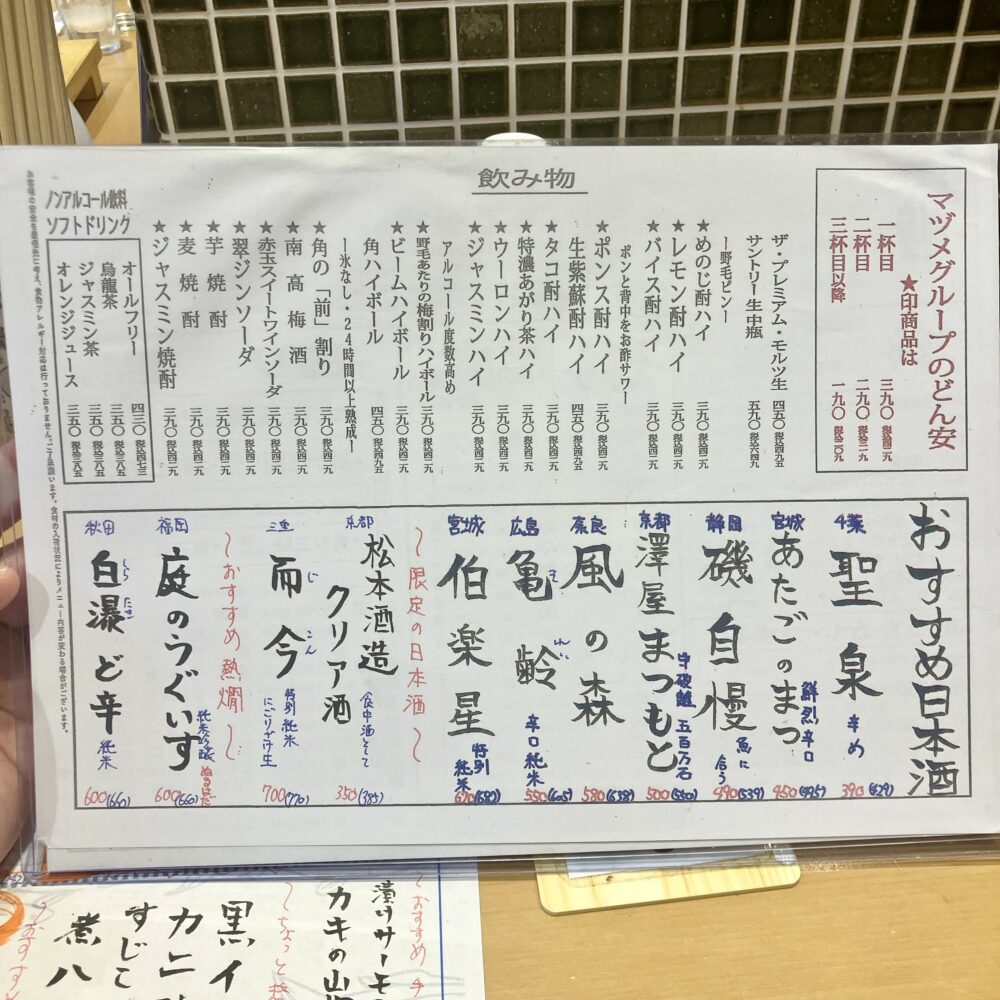 飲み物
マヅメグループのどん安
★印商品は
一杯目 三九〇 税込四二九
二杯目 二九〇 税込三一九
三杯目以降 一九〇 税込二〇九
ザ・プレミアム・モルツ生 四五〇 税込四九五
サントリー生中瓶 五九〇 税込六四九
ー野毛ピンー
★めのじ酎ハイ 三九〇 税込四二九
★レモン酎ハイ 三九〇 税込四二九
★バイス酎ハイ 三九〇 税込四二九
ポンと背中をお酢サワー
★ポンス酎ハイ 三九〇 税込四二九
生紫蘇酎ハイ 四五〇 税込四九五
★タコ酎ハイ 三九〇 税込四二九
★特濃あがり茶ハイ 三九〇 税込四二九
★ウーロンハイ 三九〇 税込四二九
★ジャスミンハイ 三九〇 税込四二九
アルコール度数高め
★野毛あたりの梅割りハイボール 三九〇 税込四二九
★ビームハイボール 三九〇 税込四二九
角ハイボール 四五〇 税込四九五
ー氷なし・24時間以上熟成ー
★角の「前」割り 三九〇 税込四二九
★南高梅酒 三九〇 税込四二九
★赤玉スイートワインソーダ 三九〇 税込四二九
★翠ジンソーダ 三九〇 税込四二九
★芋焼酎 三九〇 税込四二九
★麦焼酎 三九〇 税込四二九
★ジャスミン焼酎 三九〇 税込四二九
ノンアルコール飲料
ソフトドリンク
オールフリー 四三〇 税込四七三
烏龍茶 三五〇 税込三八五
ジャスミン茶 三五〇 税込三八五
オレンジジュース 三五〇 税込三八五
お客様の安全を最優先に考え、食物アレルギー対応は行っておりません。ご了承願います。食材の入荷状況によりメニュー内容が変わる場合がございます。
おすすめ日本酒
千葉 聖泉 辛め 390(429)
宮城 あたごのまつ 鮮烈辛口 450(495)
静岡 磯自慢 魚に合う 490(539)
京都 澤屋まつもと 守破離 五百万石 500(550)
奈良 風の森 580(638)
広島 亀齢 きれい 辛口純米 550(605)
宮城 伯楽星 特別純米 620(682)
〜限定の日本酒〜
京都 松本酒造
クリア酒 食中酒として 350(385)
三重 而今 じこん 特別純米 にごりざけ生 700(770)
〜おすすめ熱燗〜
福岡 庭のうぐいす 純米吟醸 ぬるはだ 600(660)
秋田 白瀑ど辛 しらたき 純米 600(660)
〜おすすめ
漬けサーモ
カキの山
〜ちょっと
黒イ
カニ
すじこ
煮ハ
〜おすす